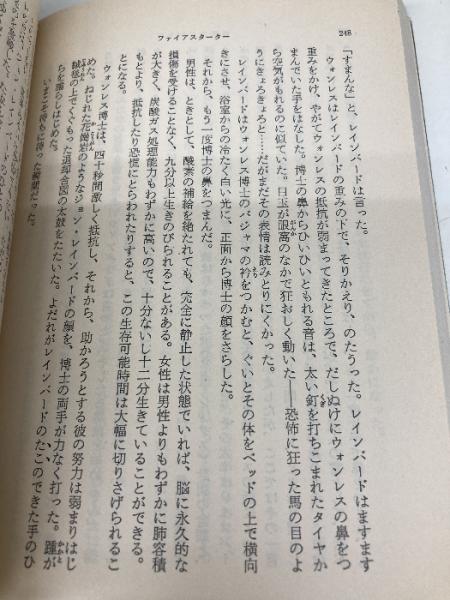 ファイアスターター
248
「すまんな」と、レインバードは言った。
ウォンレスはレインバードの重みの下で、そりかえり、のたうった。レインバードはますます
重みをかけ、やがてウォンレスの抵抗が弱まってきたところで、だしぬけにウォンレスの鼻をつ
まんでいた手をはなした。博士の鼻からひいひいともれる音は、太い釘を打ちこまれたタイヤか
ら空気がもれるのに似ていた。目玉が眼窩のなかで狂おしく動いた――恐怖に狂った馬の目のよ
うにきょろきょろと……だがまだその表情は読みとりにくかった。
レインバードはウォンレス博士のパジャマの衿をつかむと、ぐいとその体をベッドの上で横向
きにさせ、浴室からの冷たく白い光に、正面から博士の顔をさらした。
それから、もう一度博士の鼻をつまんだ。
男性は、ときとして、酸素の補給を絶たれても、完全に静止した状態でいれば、脳に永久的な
損傷を受けることなく、九分以上生きのびられることがある。女性は男性よりもわずかに肺容積
が大きく、炭酸ガス処理能力もわずかに高いので、十分ないし十二分生きていることができる。
もとより、抵抗したり恐慌にとらわれたりすると、この生存可能時間は大幅に切りさげられるこ
とになる。
ウォンレス博士は、四十秒間激しく抵抗し、それから、助かろうとする彼の努力は弱まりはじ
めた。ねじれた花崗岩のようなジョン・レインバードの顔を、博士の両手が力なく打った。踵が
絨毯の上でくぐもった退却合図の太鼓をたたいた。よだれがレインバードのたこのできた手のひ
らを濡らしはじめた。
いまこそ待ちに待った瞬間だった。